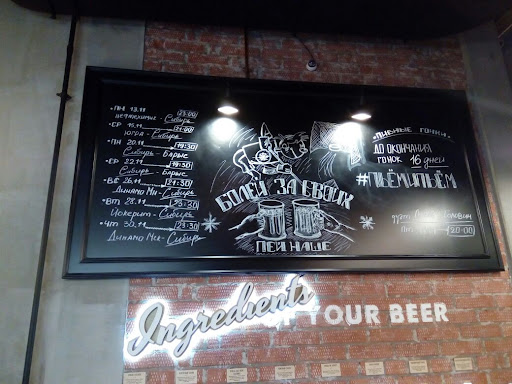 • ПН 13.11 23:00
Нефтехимик - Сибирь
• СР 15.11 21:00
Югра - Сибирь
ПН 20.11 19:30
Сибирь - Барыс
• СР 22.11 19:30
Сибирь - Барыс
• ВС 26.11 21:30
Динамо Мн - Сибирь
• ВТ 28.11 23:30
Йокерит - Сибирь
• ЧТ 30.11 23:30
Динамо Мск - Сибирь
БОЛЕЙ ЗА СВОИХ
ПЕЙ НАШЕ
• ПИВНЫЕ ГОНКИ •
ДО ОКОНЧАНИЯ
ГОНОК 16 дней
#ПЬЁМИПЬЁМ
20:00
Ingredients
YOUR BEER